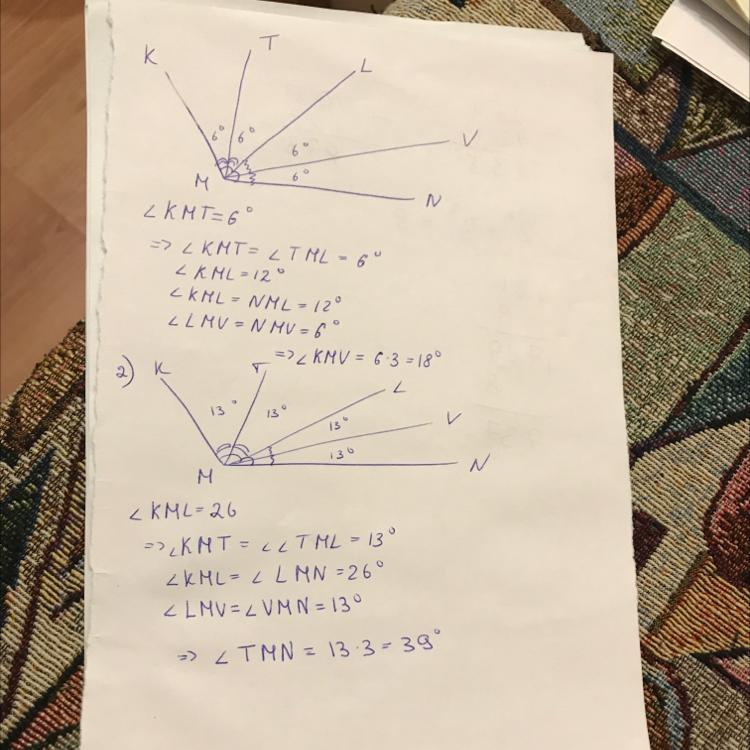 K T L V N M
6° 6° 6° 6°
∠KMT=6°
=> ∠KMT= ∠TML = 6°
∠KML=12°
∠KML = NML=12°
∠LMV = NMV=6°
=>∠KMV = 6·3=18°
2) K T L V N M
13° 13° 13° 13°
∠KML=26
=>∠KMT = ∠∠TML = 13°
∠KML= ∠LMN =26°
∠LMV=∠VMN=13°
=> ∠TMN = 13·3=39°